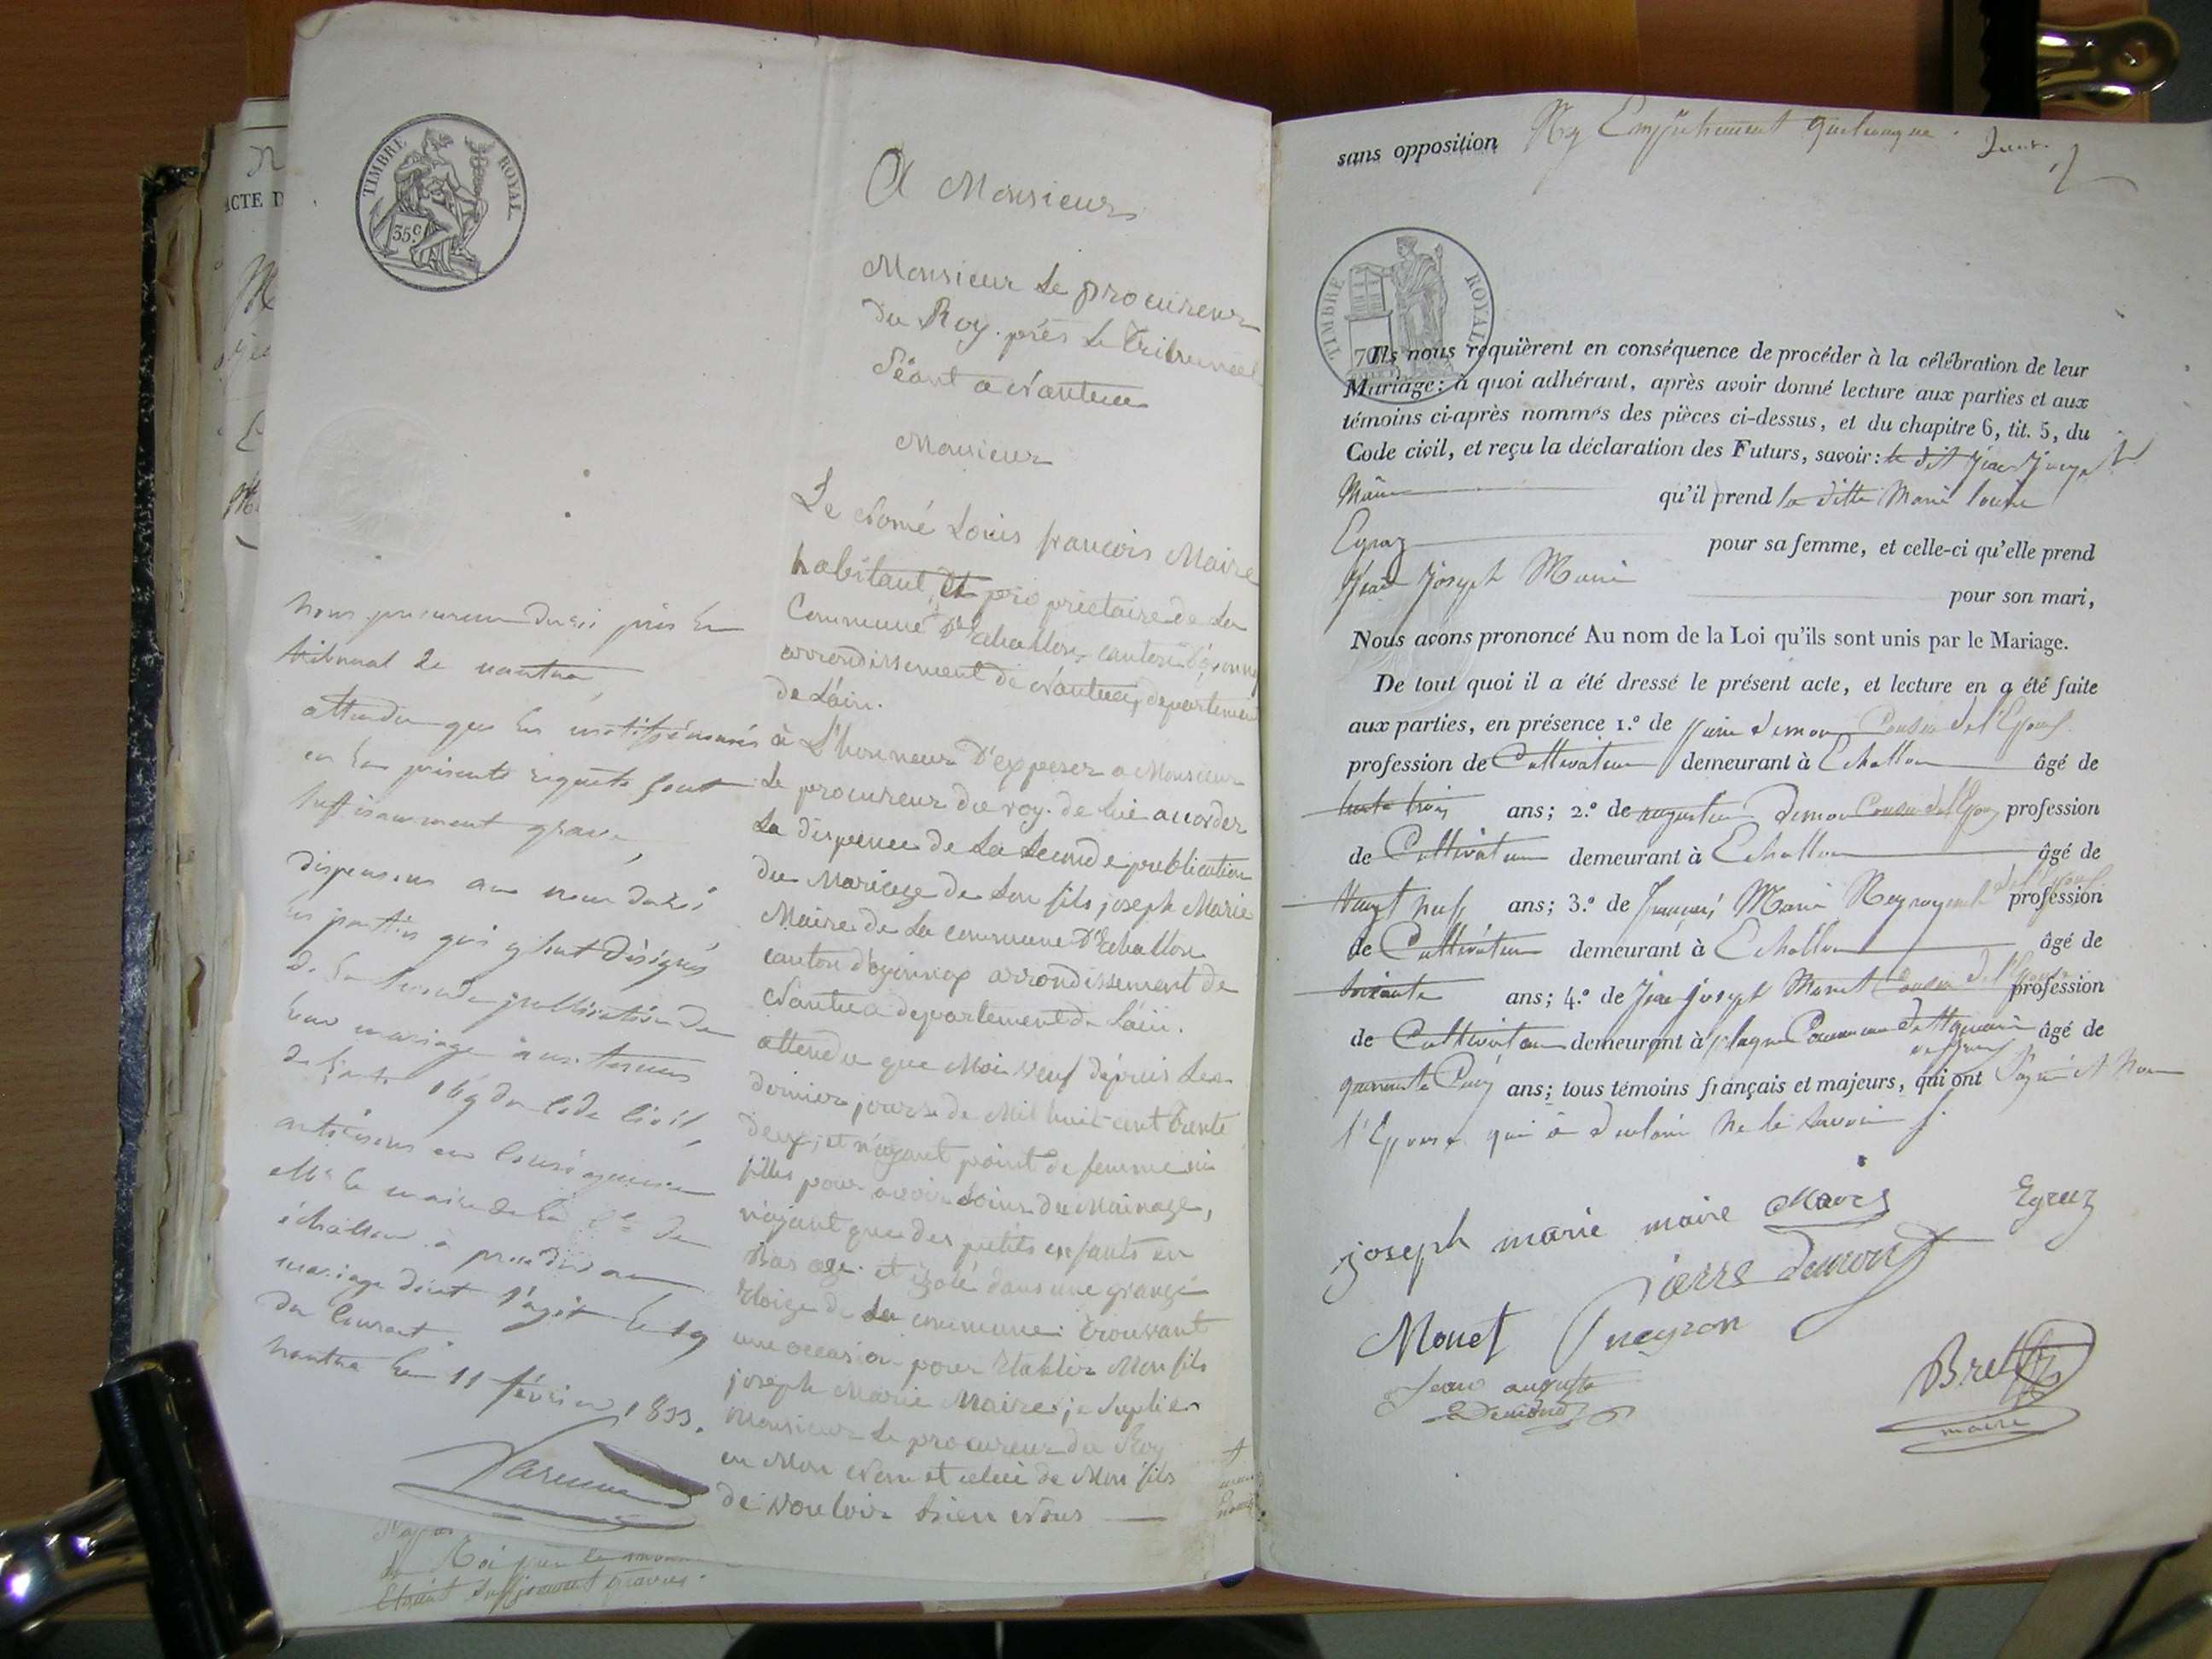 ACTE D
TIMBRE ROYAL
35c
A Monsieur
Monsieur Le procureur
du Roy. près Le Tribunal
Séant a Nantua
Monsieur
Le Nomé Louis françois Maire
habitant, Et proprietaire de La
Commune D'Echallon, canton d'oyonna
arrondissement de Nantua, departement
de L'ain.
à L'honneur D'éxposer a Monsieur
Le procureur du roy. de lui accorder
La dispence de La Seconde publication
du Mariage de Son fils joseph Marie
Maire de La commune D'Echallon
canton d'oyonnax arrondissement de
Nantua departement de L'ain.
attendu que Moi veuf dépuis Les
dernier jours de Mil huit-cent trente
deux, et n'ayant point de femme ni
filles pour avoir Soins du Mainage,
n'ayant que des petits enfants en
Bas age. et izolé dans une grange
Eloigé de La commune: trouvant
une occasion pour Etablir Mon fils
joseph Marie Maire; je Suplie
Monsieur Le procureur du Roy
en Mon Nom et celui de Mon fils
de vouloir bien Nous
Nous procureur du roi près le
tribunal de nantua,
attendu que les motifs énoncés
en la présente requête sont
suffisamment graves,
dispensons au nom du roi
les parties qui y sont désignés
de la seconde publication de
leur mariage aux termes
de l'art. 169 du Code Civil,
autorisons en Conséquence
Mr le maire de la Cne de
échallon à procéder au
mariage dont s'agit le 19
du Courant.
Nantua le 11 février 1833.
du Roi que les
Etaient suffisament graves.
sans opposition Ny Empêchement quelconque.
TIMBRE ROYAL
70
Ils nous requièrent en conséquence de procéder à la célébration de leur
Mariage: à quoi adhérant, après avoir donné lecture aux parties et aux
témoins ci-après nommés des pièces ci-dessus, et du chapitre 6, tit. 5, du
Code civil, et reçu la déclaration des Futurs, savoir: le dit Jean Joseph
Maire qu'il prend la ditte Marie louise
Egraz pour sa femme, et celle-ci qu'elle prend
Jean Joseph Marie pour son mari,
Nous avons prononcé Au nom de la Loi qu'ils sont unis par le Mariage.
De tout quoi il a été dressé le présent acte, et lecture en a été faite
aux parties, en présence 1.º de pierre demon Cousin de l'Epoux
profession de Cultivateur demeurant à Echallon âgé de
trente trois ans; 2.º de augustin demon Cousin de l'Epoux profession
de Cultivateur demeurant à Echallon âgé de
Vingt neuf ans; 3.º de françois Marie de l'Epouse profession
de Cultivateur demeurant à Echallon âgé de
Soixante ans; 4.º de Jean joseph Monet Cousin de l'Epouse profession
de Cultivateur demeurant à plagne Commune de âgé de
quarante Cinq ans; tous témoins français et majeurs, qui ont Signé et Non
l'Epouse qui a declaré Ne le Savoir
joseph marie maire
Egraz
pierre demont
Monet
Jean auguste
Demond
maire